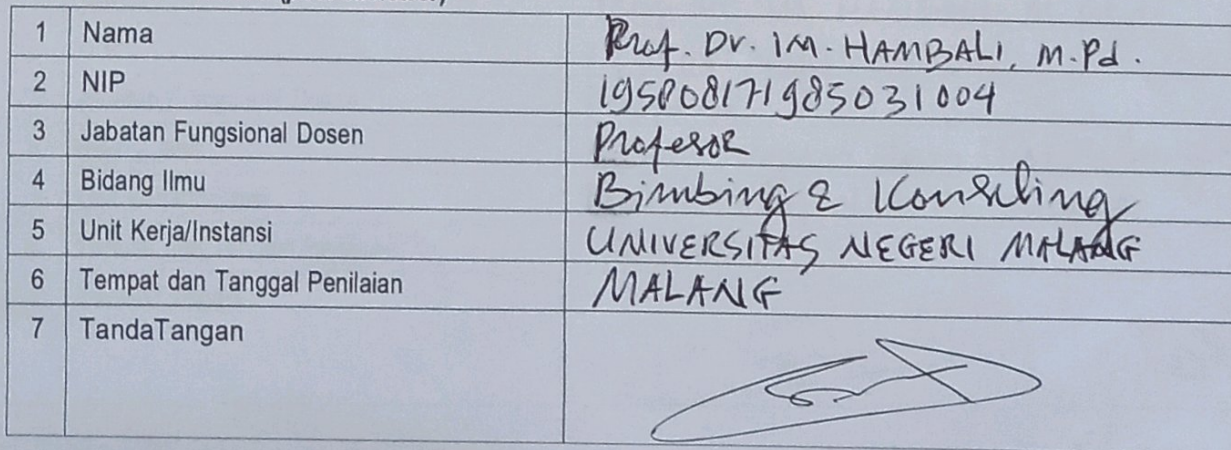 1 Nama Prof. Dr. IM. HAMBALI, M.Pd.
2 NIP 195808171985031004
3 Jabatan Fungsional Dosen Profesor
4 Bidang Ilmu Bimbing & Konseling
5 Unit Kerja/Instansi UNIVERSITAS NEGERI MALANG
6 Tempat dan Tanggal Penilaian MALANG
7 TandaTangan